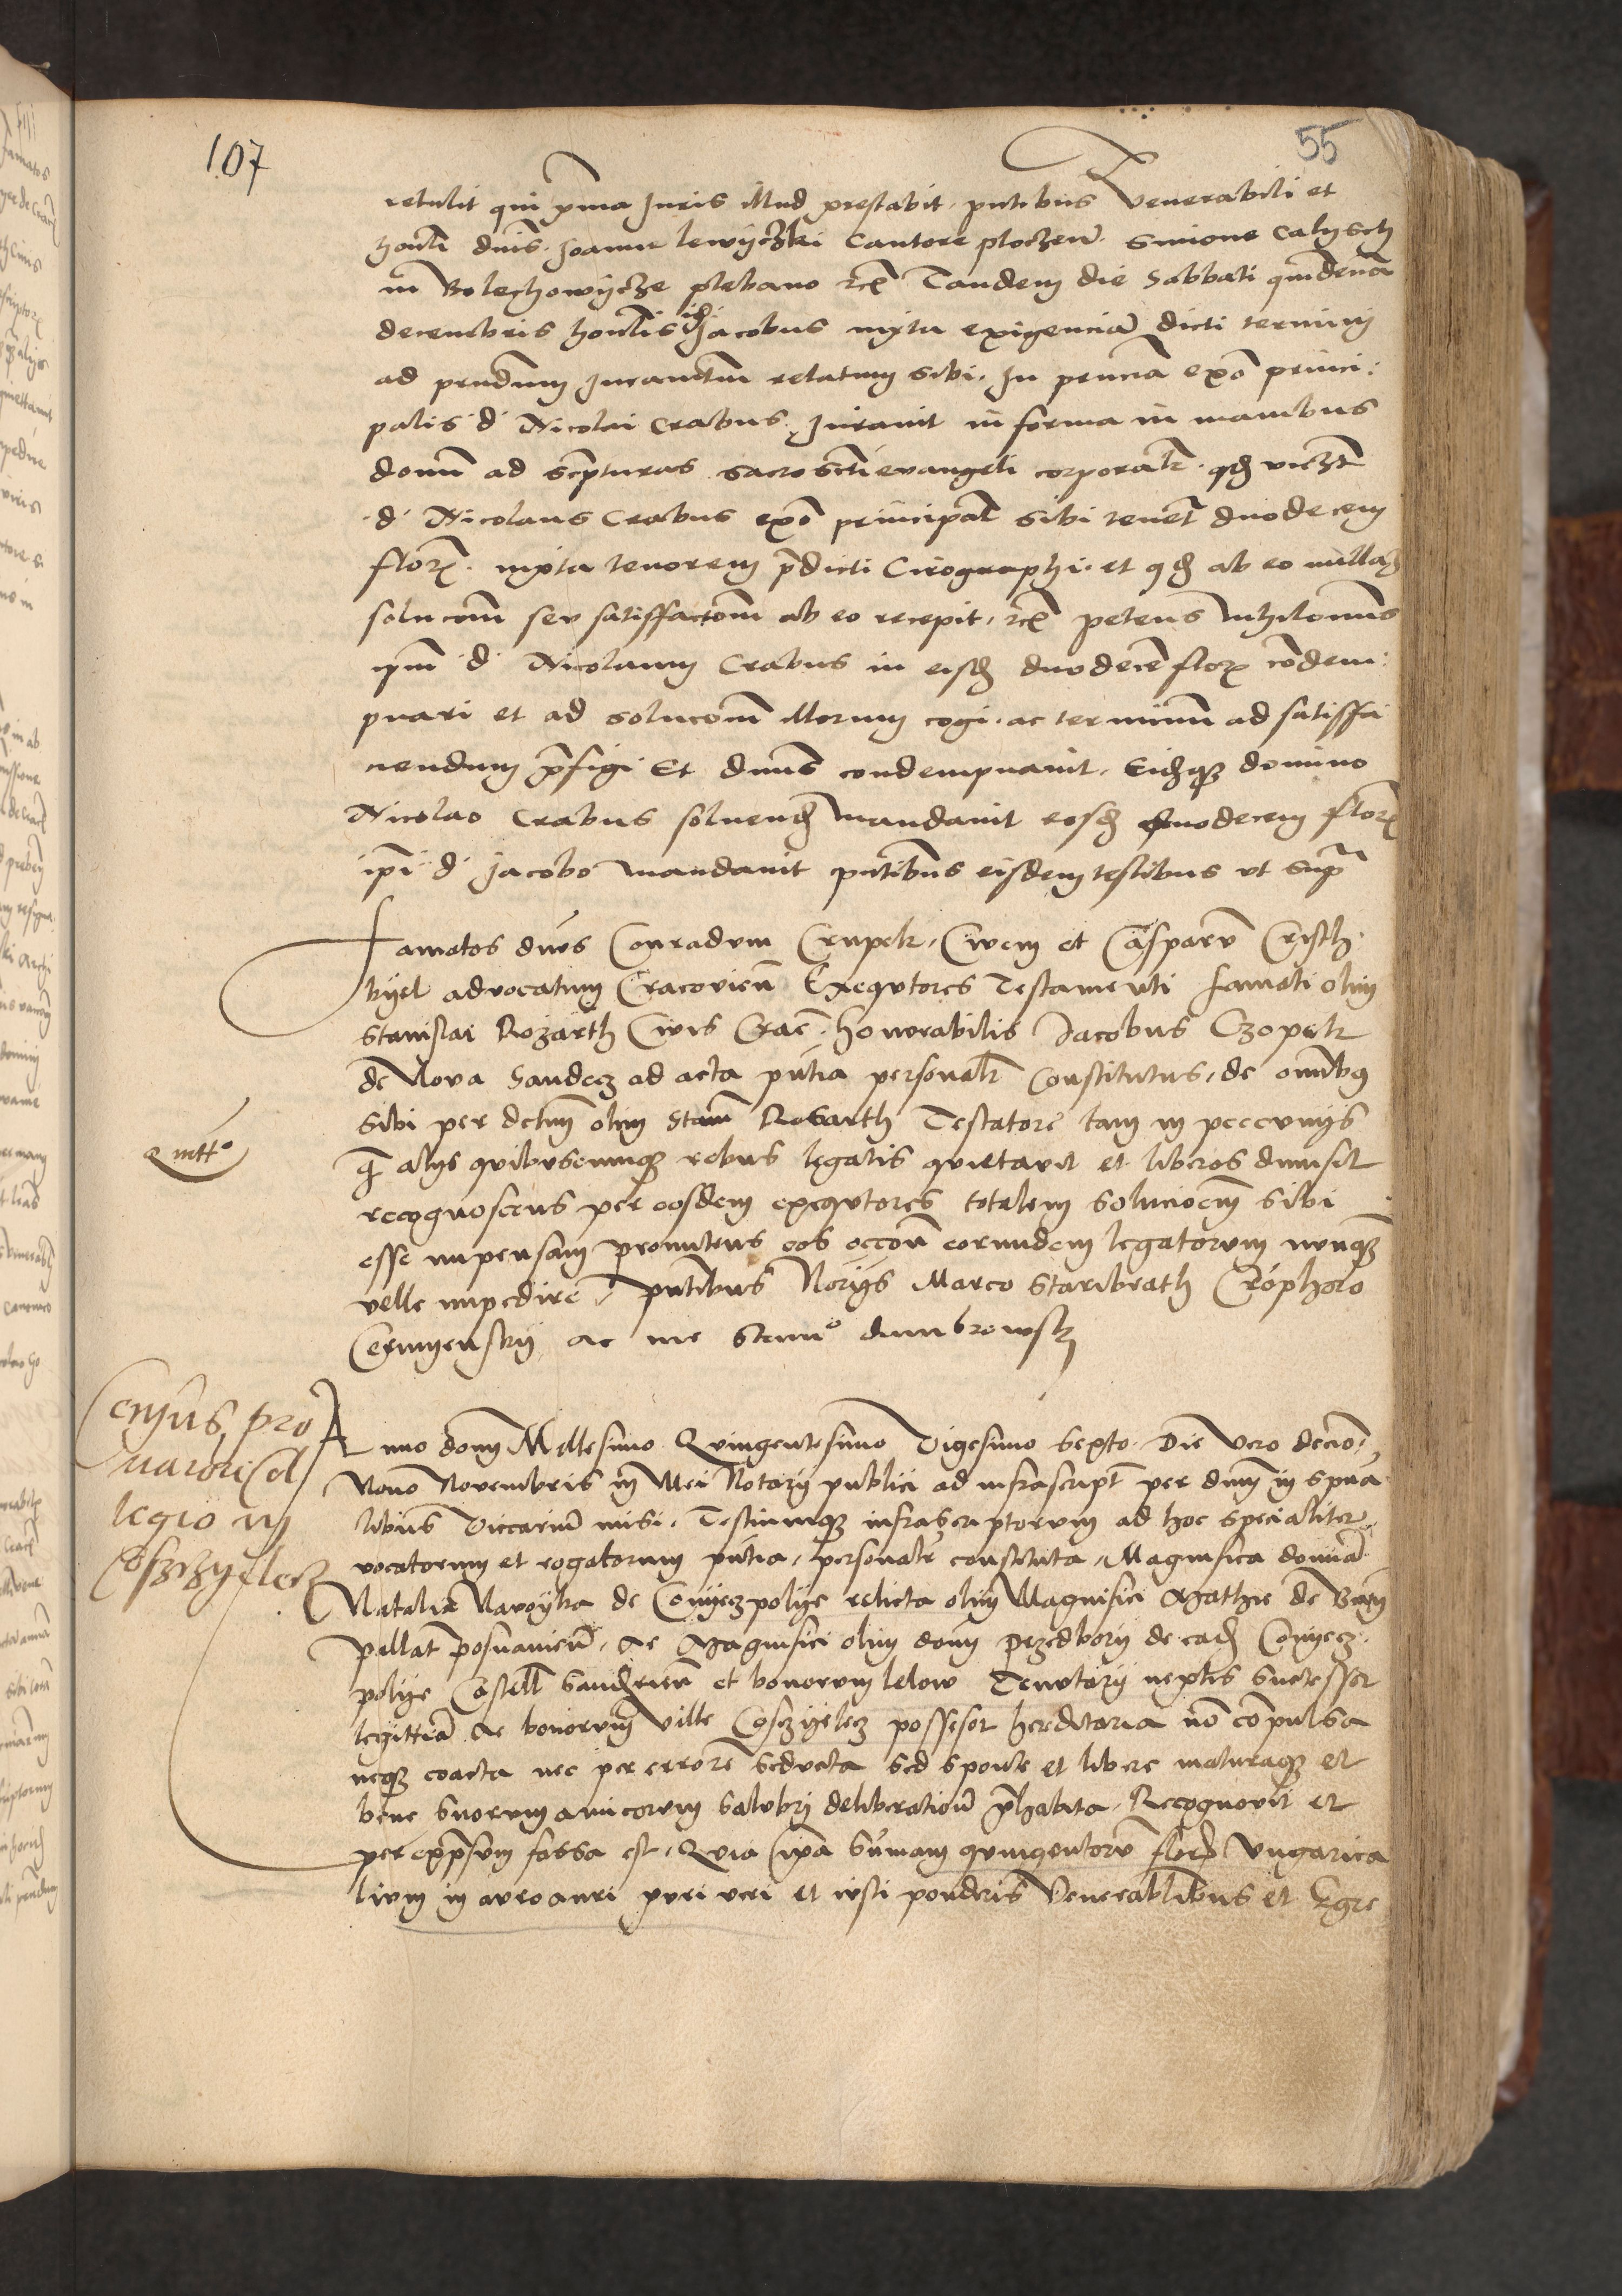 107
55
retulit qui prima Juris illud prestabit. pntibus Venerabili et
honli dnis. Joanne lewyczki Cantore ploczen. Simone Calysch
in Bolechowycze plebano rcz Tandem die Sabbati quindena
decembris honlis idem Jacobus iuxta exigenciam dicti termini
ad prndum Juramentum relatum sibi. In prncia exo princi:
palis d Nicolai Crabus. Juravit in forma in manibus
domini ad scripturas sacrosancti evangeli corporalr. qd viczt
d Nicolaus Crabus exo principal sibi tenet duodecem
flor. iuxta tenorem predicti Cirographi. et qd ab eo nullam
solucionem seu satisffactionem ab eo recepit, rcz petens nihilominus
ipm d Nicolaum Crabus in eisd duodecem flor condem:
pnari et ad solucionem illorum cogi. ac terminum ad satisffa
ciendum prefigi Et dnus condempnavit. Eidemque domino
Nicolao Crabus solvend mandavit eosd duodecem flor
ipi d Jacobo mandavit pntibus eisdem testibus ut supra
Famatos dnos Conradum Crupek, Civem et Casparum Crisch
kyel advocatum Cracovien Exequtores Testamenti famati olim
Stanislai Rozarth Civis Crac. honorabilis Jacobus Czopek
de Nova Sandecz ad acta pntia personalr Constitutus, de omnibus
sibi per dctum olim Stanm Rosarth Testatore tam in peccunys
q alys quibuscumque rebus legatis quietavit et liberos dimisit
recognoscens per eosdem exequtores totalem solucionem sibi
esse impensam promittens eos occon eorundem legatorum nunquam
velle impedire, pntibus Norys Marco Staribrath Crophoro
ac me Stano dambrowsky
Quitto
Census pro
maiori Col
legio in
Cosczyelecz
Anno domini Millesimo Quingentesimo Vigesimo Sexto. Die vero decimo
Nono Novembris in Mei Notary publici ad infrascript per dnum in spua
libus Viccarium misi. Testiumque infrascriptorum ad hoc specialiter
vocatorum et rogatorum pntia, personalr constituta, Magnifica domina
Natalia Navoyka de Conyeczpolye relicta olim Magnifici Mathie de Bnyn
pallat posnanien, ac Magnifici olim domi przedbory de ead Conyecz
polye Castell Sandomirien et bonorum lelow Tenutary neptis Suctessor
legittima ac bonorum ville Cosczyelecz possesor hereditaria no compulsa
neque coacta nec per errore seducta sed sponte et libere maturaque et
bene suorum amicorum salubri deliberationem prehabita, Recognovit et
per expressum fassa est, Quia ipsa summam quingentorum flor Ungarica
lium in auro auri puri veri et iusti ponderis Venerablibus et Egre